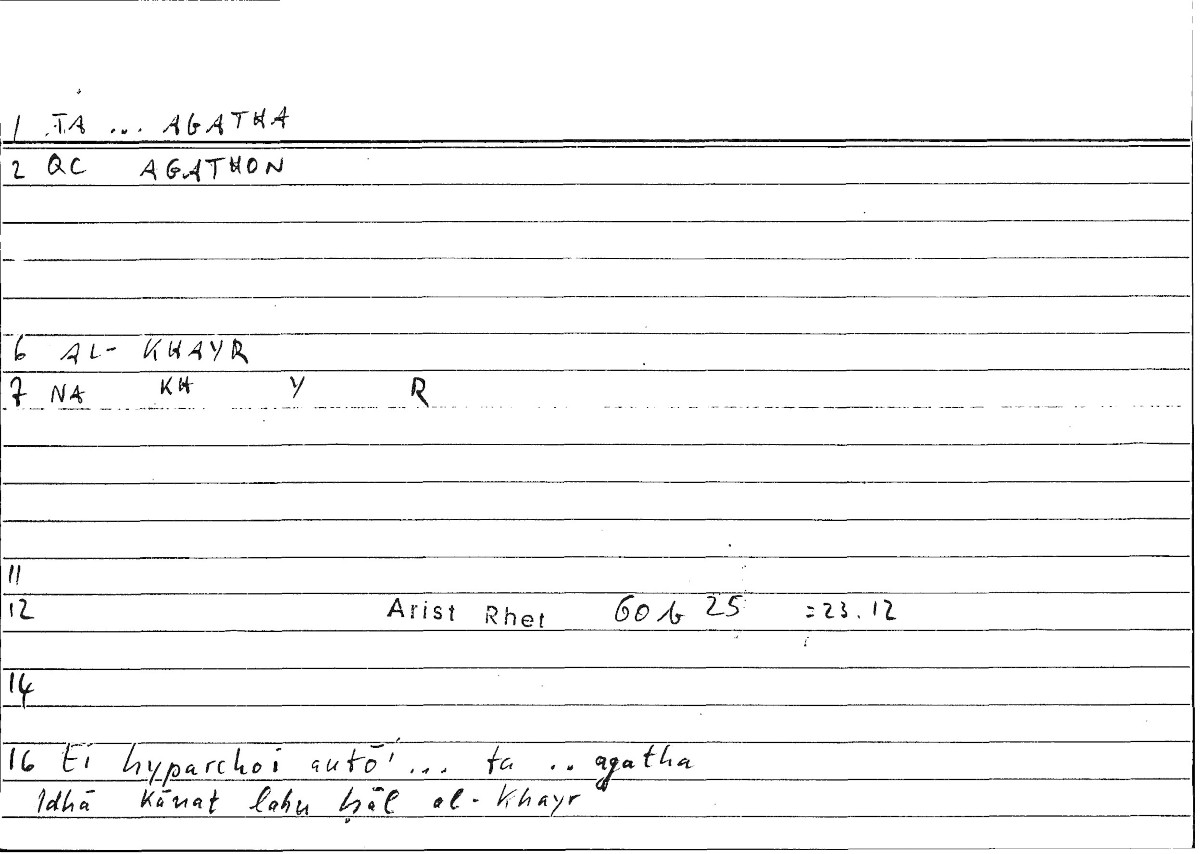 1 TA ... AGATHA
2 QC AGATHON
6 AL- KHAYR
7 NA KH Y R
11
12 Arist Rhet 60b 25 =23.12
14
16 Ei hyparchoi autō' ... ta .. agatha
Idhā kānat lahu ḥāl al-Khayr